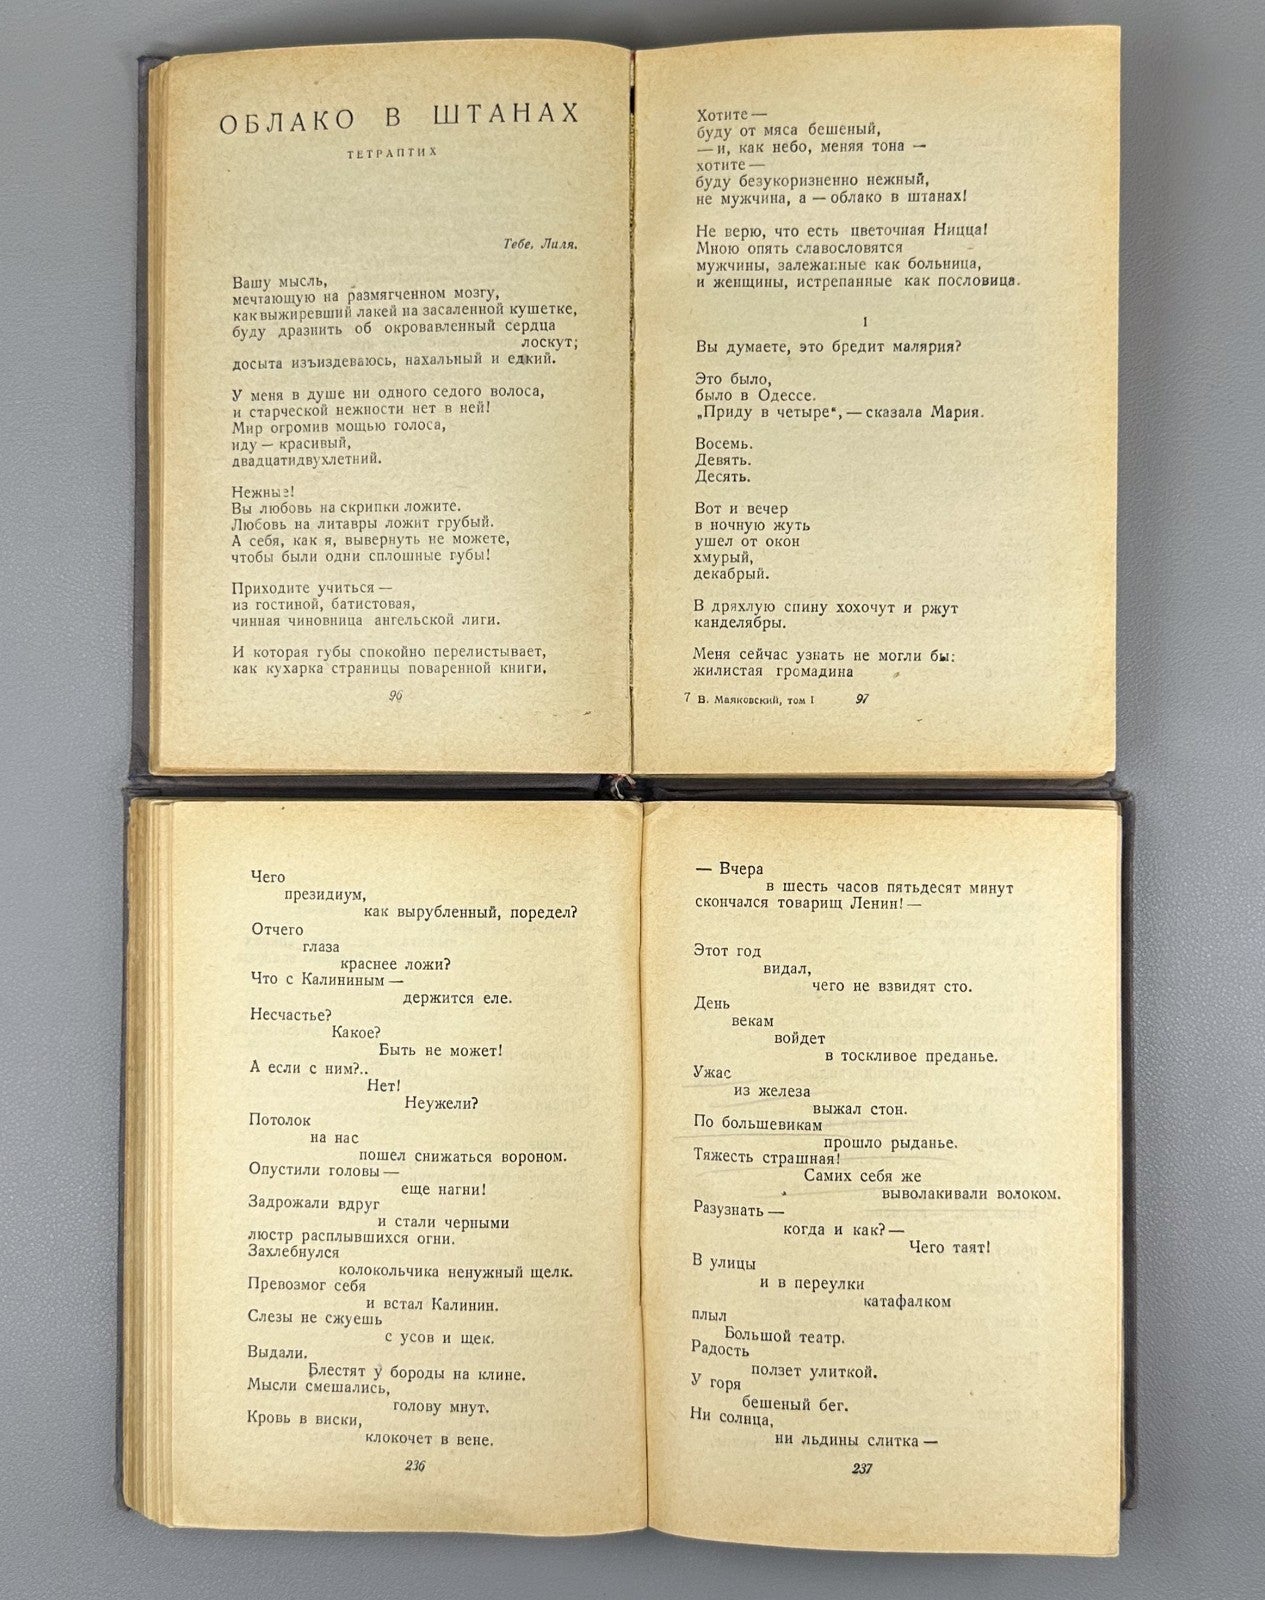 ОБЛАКО В ШТАНАХ
ТЕТРАПТИХ
Тебе, Лиля.
Вашу мысль,
мечтающую на размягченном мозгу,
как выжиревший лакей на засаленной кушетке,
буду дразнить об окровавленный сердца
лоскут;
досыта изъиздеваюсь, нахальный и едкий.
У меня в душе ни одного седого волоса,
и старческой нежности нет в ней!
Мир огромив мощью голоса,
иду — красивый,
двадцатидвухлетний.
Нежные!
Вы любовь на скрипки ложите.
Любовь на литавры ложит грубый.
А себя, как я, вывернуть не можете,
чтобы были одни сплошные губы!
Приходите учиться —
из гостиной, батистовая,
чинная чиновница ангельской лиги.
И которая губы спокойно перелистывает,
как кухарка страницы поваренной книги.
96
Хотите —
буду от мяса бешеный,
— и, как небо, меняя тона —
хотите —
буду безукоризненно нежный,
не мужчина, а — облако в штанах!
Не верю, что есть цветочная Ницца!
Мною опять славословятся
мужчины, залежанные как больница,
и женщины, истрепанные как пословица.
I
Вы думаете, это бредит малярия?
Это было,
было в Одессе.
„Приду в четыре“, — сказала Мария.
Восемь.
Девять.
Десять.
Вот и вечер
в ночную жуть
ушел от окон
хмурый,
декабрый.
В дряхлую спину хохочут и ржут
канделябры.
Меня сейчас узнать не могли бы:
жилистая громадина
7 В. Маяковский, том I 97
Чего
президиум,
как вырубленный, поредел?
Отчего
глаза
краснее ложи?
Что с Калининым —
держится еле.
Несчастье?
Какое?
Быть не может!
А если с ним?..
Нет!
Неужели?
Потолок
на нас
пошел снижаться вороном.
Опустили головы —
еще нагни!
Задрожали вдруг
и стали черными
люстр расплывшихся огни.
Захлебнулся
колокольчика ненужный щелк.
Превозмог себя
и встал Калинин.
Слезы не сжуешь
с усов и щек.
Выдали.
Блестят у бороды на клине.
Мысли смешались,
голову мнут.
Кровь в виски,
клокочет в вене.
236
— Вчера
в шесть часов пятьдесят минут
скончался товарищ Ленин! —
Этот год
видал,
чего не взвидят сто.
День
векам
войдет
в тоскливое преданье.
Ужас
из железа
выжал стон.
По большевикам
прошло рыданье.
Тяжесть страшная!
Самих себя же
выволакивали волоком.
Разузнать —
когда и как? —
Чего таят!
В улицы
и в переулки
катафалком
плыл
Большой театр.
Радость
ползет улиткой.
У горя
бешеный бег.
Ни солнца,
ни льдины слитка —
237